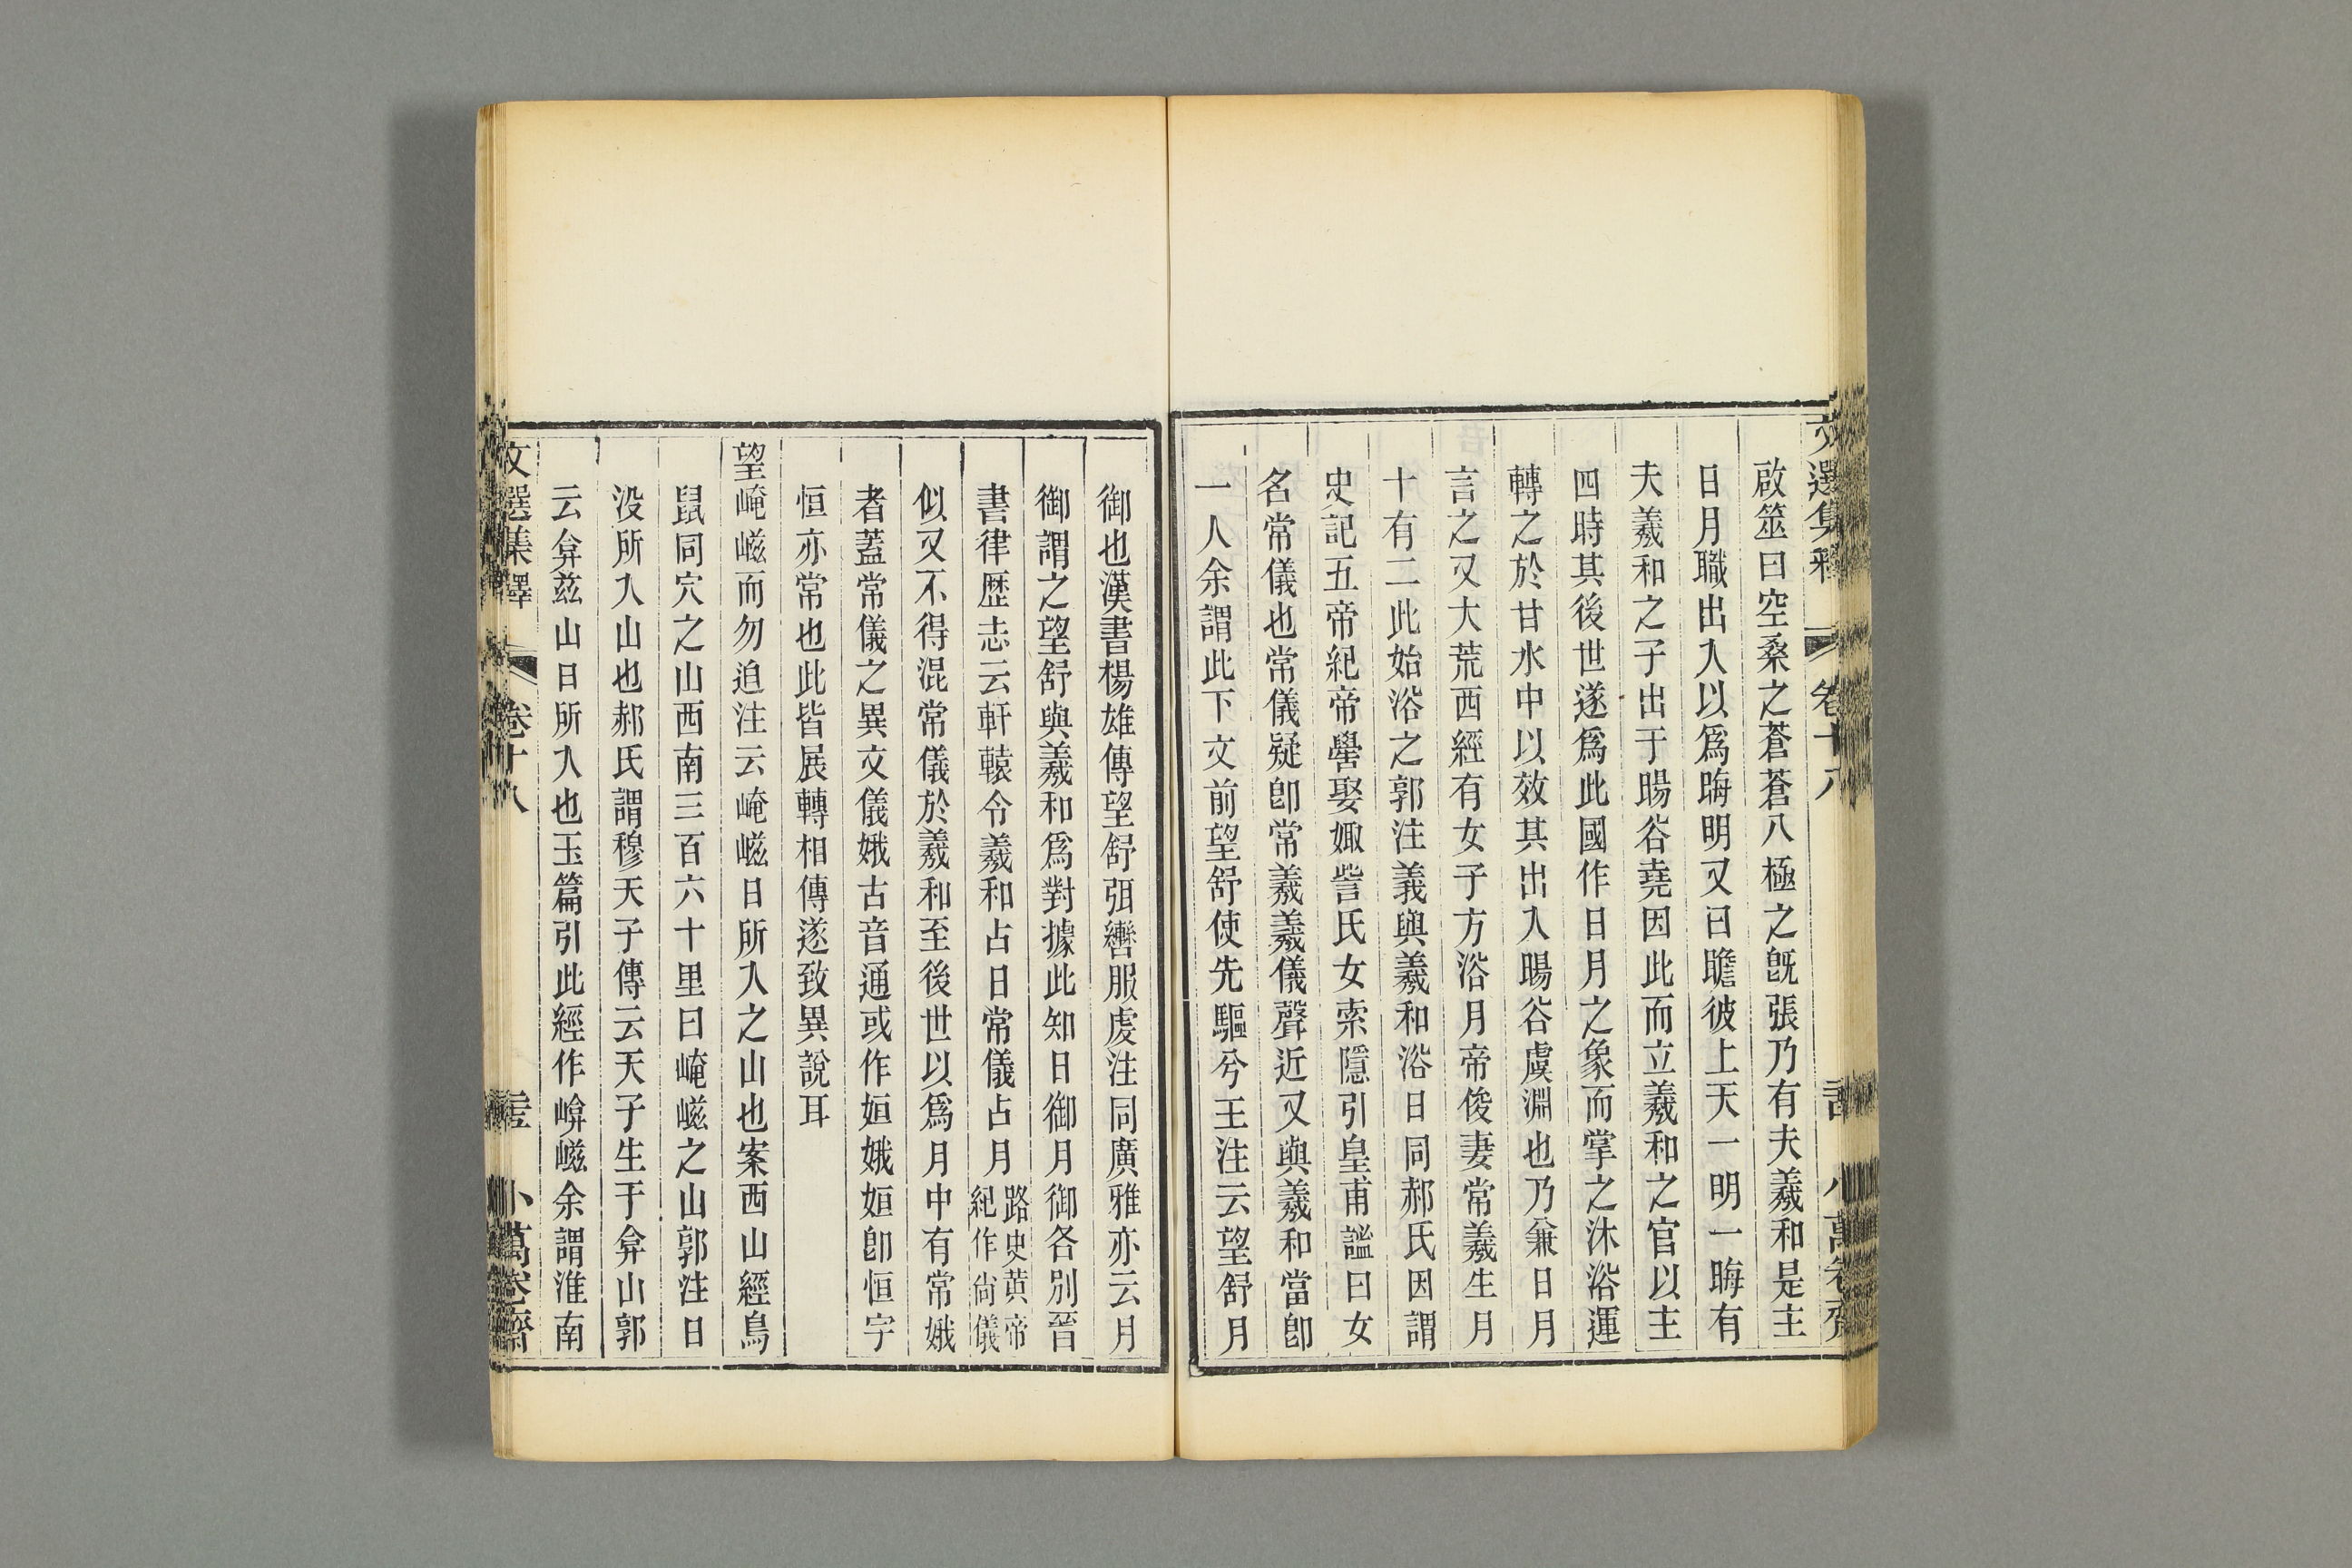 啟筮曰空桑之蒼蒼八極之旣張乃有夫羲和是主
日月職出入以爲晦明又曰瞻彼上天一明一晦有
夫羲和之子出于暘谷堯因此而立羲和之官以主
四時其後世遂爲此國作日月之象而掌之沐浴運
轉之於甘水中以效其出入暘谷虞淵也乃兼日月
言之又大荒西經有女子方浴月帝俊妻常羲生月
十有二此始浴之郭注義與羲和浴日同郝氏因謂
史記五帝紀帝嚳娶娵訾氏女索隱引皇甫謐曰女
名常儀也常儀疑卽常羲羲儀聲近又與羲和當卽
一人余謂此下文前望舒使先驅兮王注云望舒月
御也漢書楊雄傳望舒弭轡服虔注同廣雅亦云月
御謂之望舒與羲和爲對據此知日御月御各別晉
書律歷志云軒轅令羲和占日常儀占月路史黄帝紀作尙儀
似又不得混常儀於羲和至後世以爲月中有常娥
者蓋常儀之異文儀娥古音通或作姮娥姮卽恒字
恒亦常也此皆展轉相傳遂致異說耳
望崦嵫而勿迫注云崦嵫日所入之山也案西山經鳥
鼠同穴之山西南三百六十里曰崦嵫之山郭注日
没所入山也郝氏謂穆天子傳云天子生于弇山郭
云弇茲山日所入也玉篇引此經作㟇嵫余謂淮南
文選集釋 卷十八 小萬卷齋